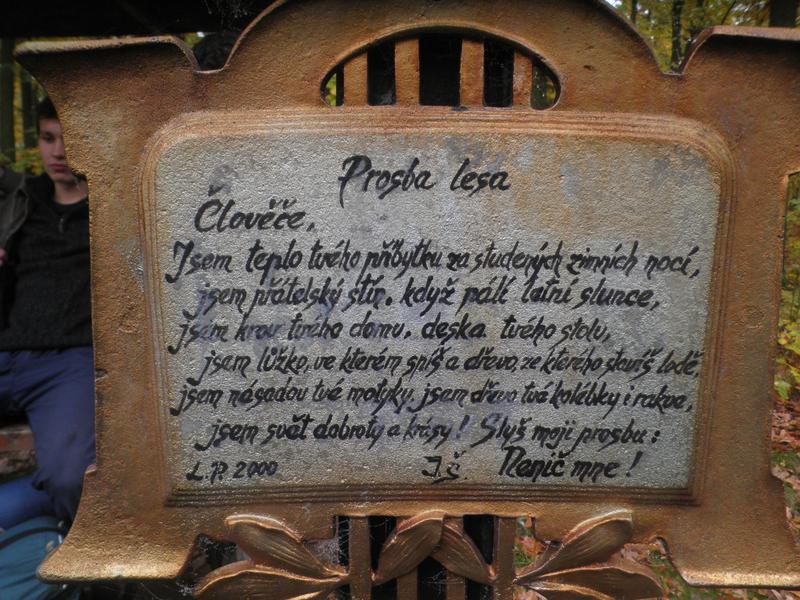 Prosba lesa
Člověče,
Jsem teplo tvého příbytku za studených zimních nocí,
jsem přátelský stín, když pálí letní slunce,
jsem krov tvého domu, deska tvého stolu,
jsem lůžko, ve kterém spíš a dřevo, ze kterého stavíš lodě,
jsem násadou tvé motyky, jsem dřevo tvá kolébky i rakve,
jsem svět dobroty a krásy! Slyš moji prosbu:
L.P. 2000 J.Š. Nenič mne!